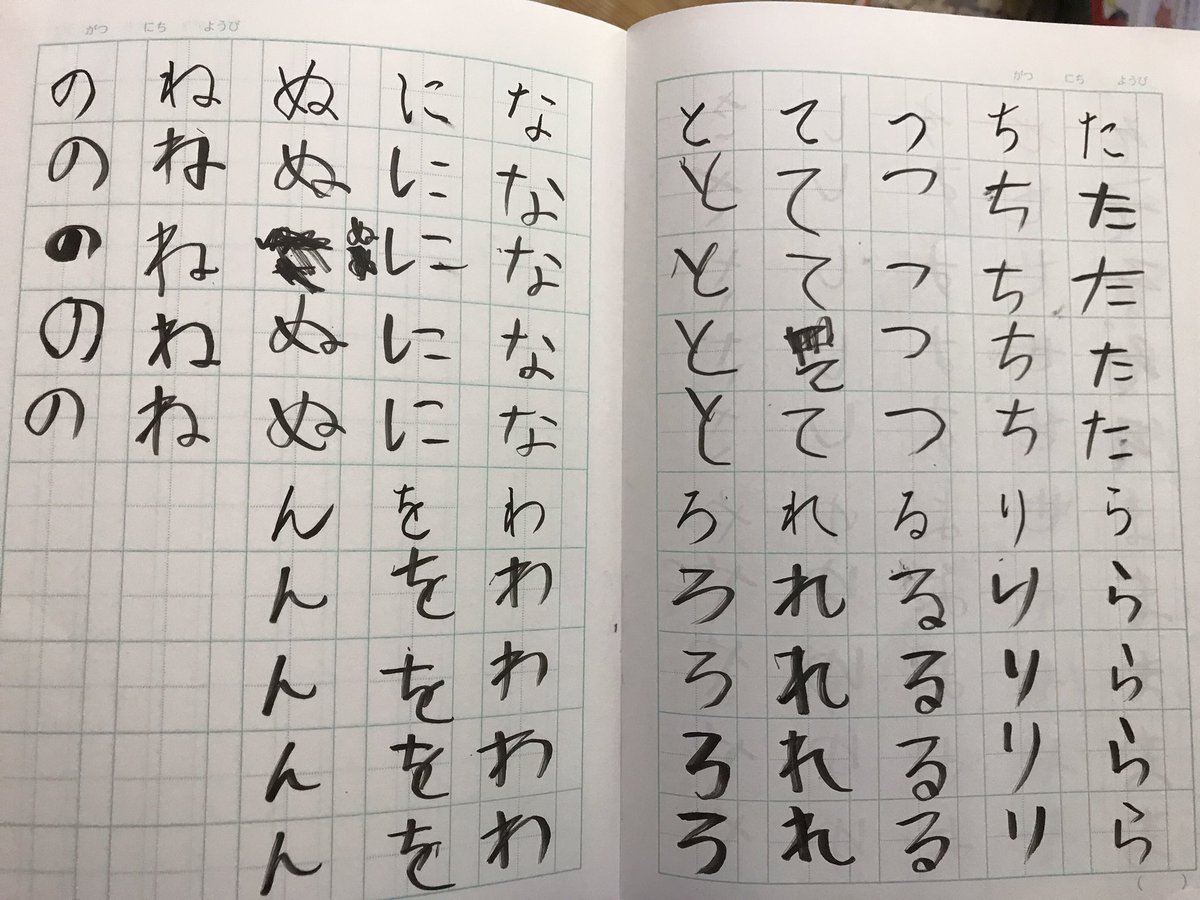 がつ にち ようび
たたたたたららららら
ちちちちちりりりりり
つつつつつるるるるる
てててててれれれれれ
とととととろろろろろ
がつ にち ようび
なななななわわわわわ
にににににををををを
ぬぬぬぬぬんんんんん
ねねねねね
ののののの